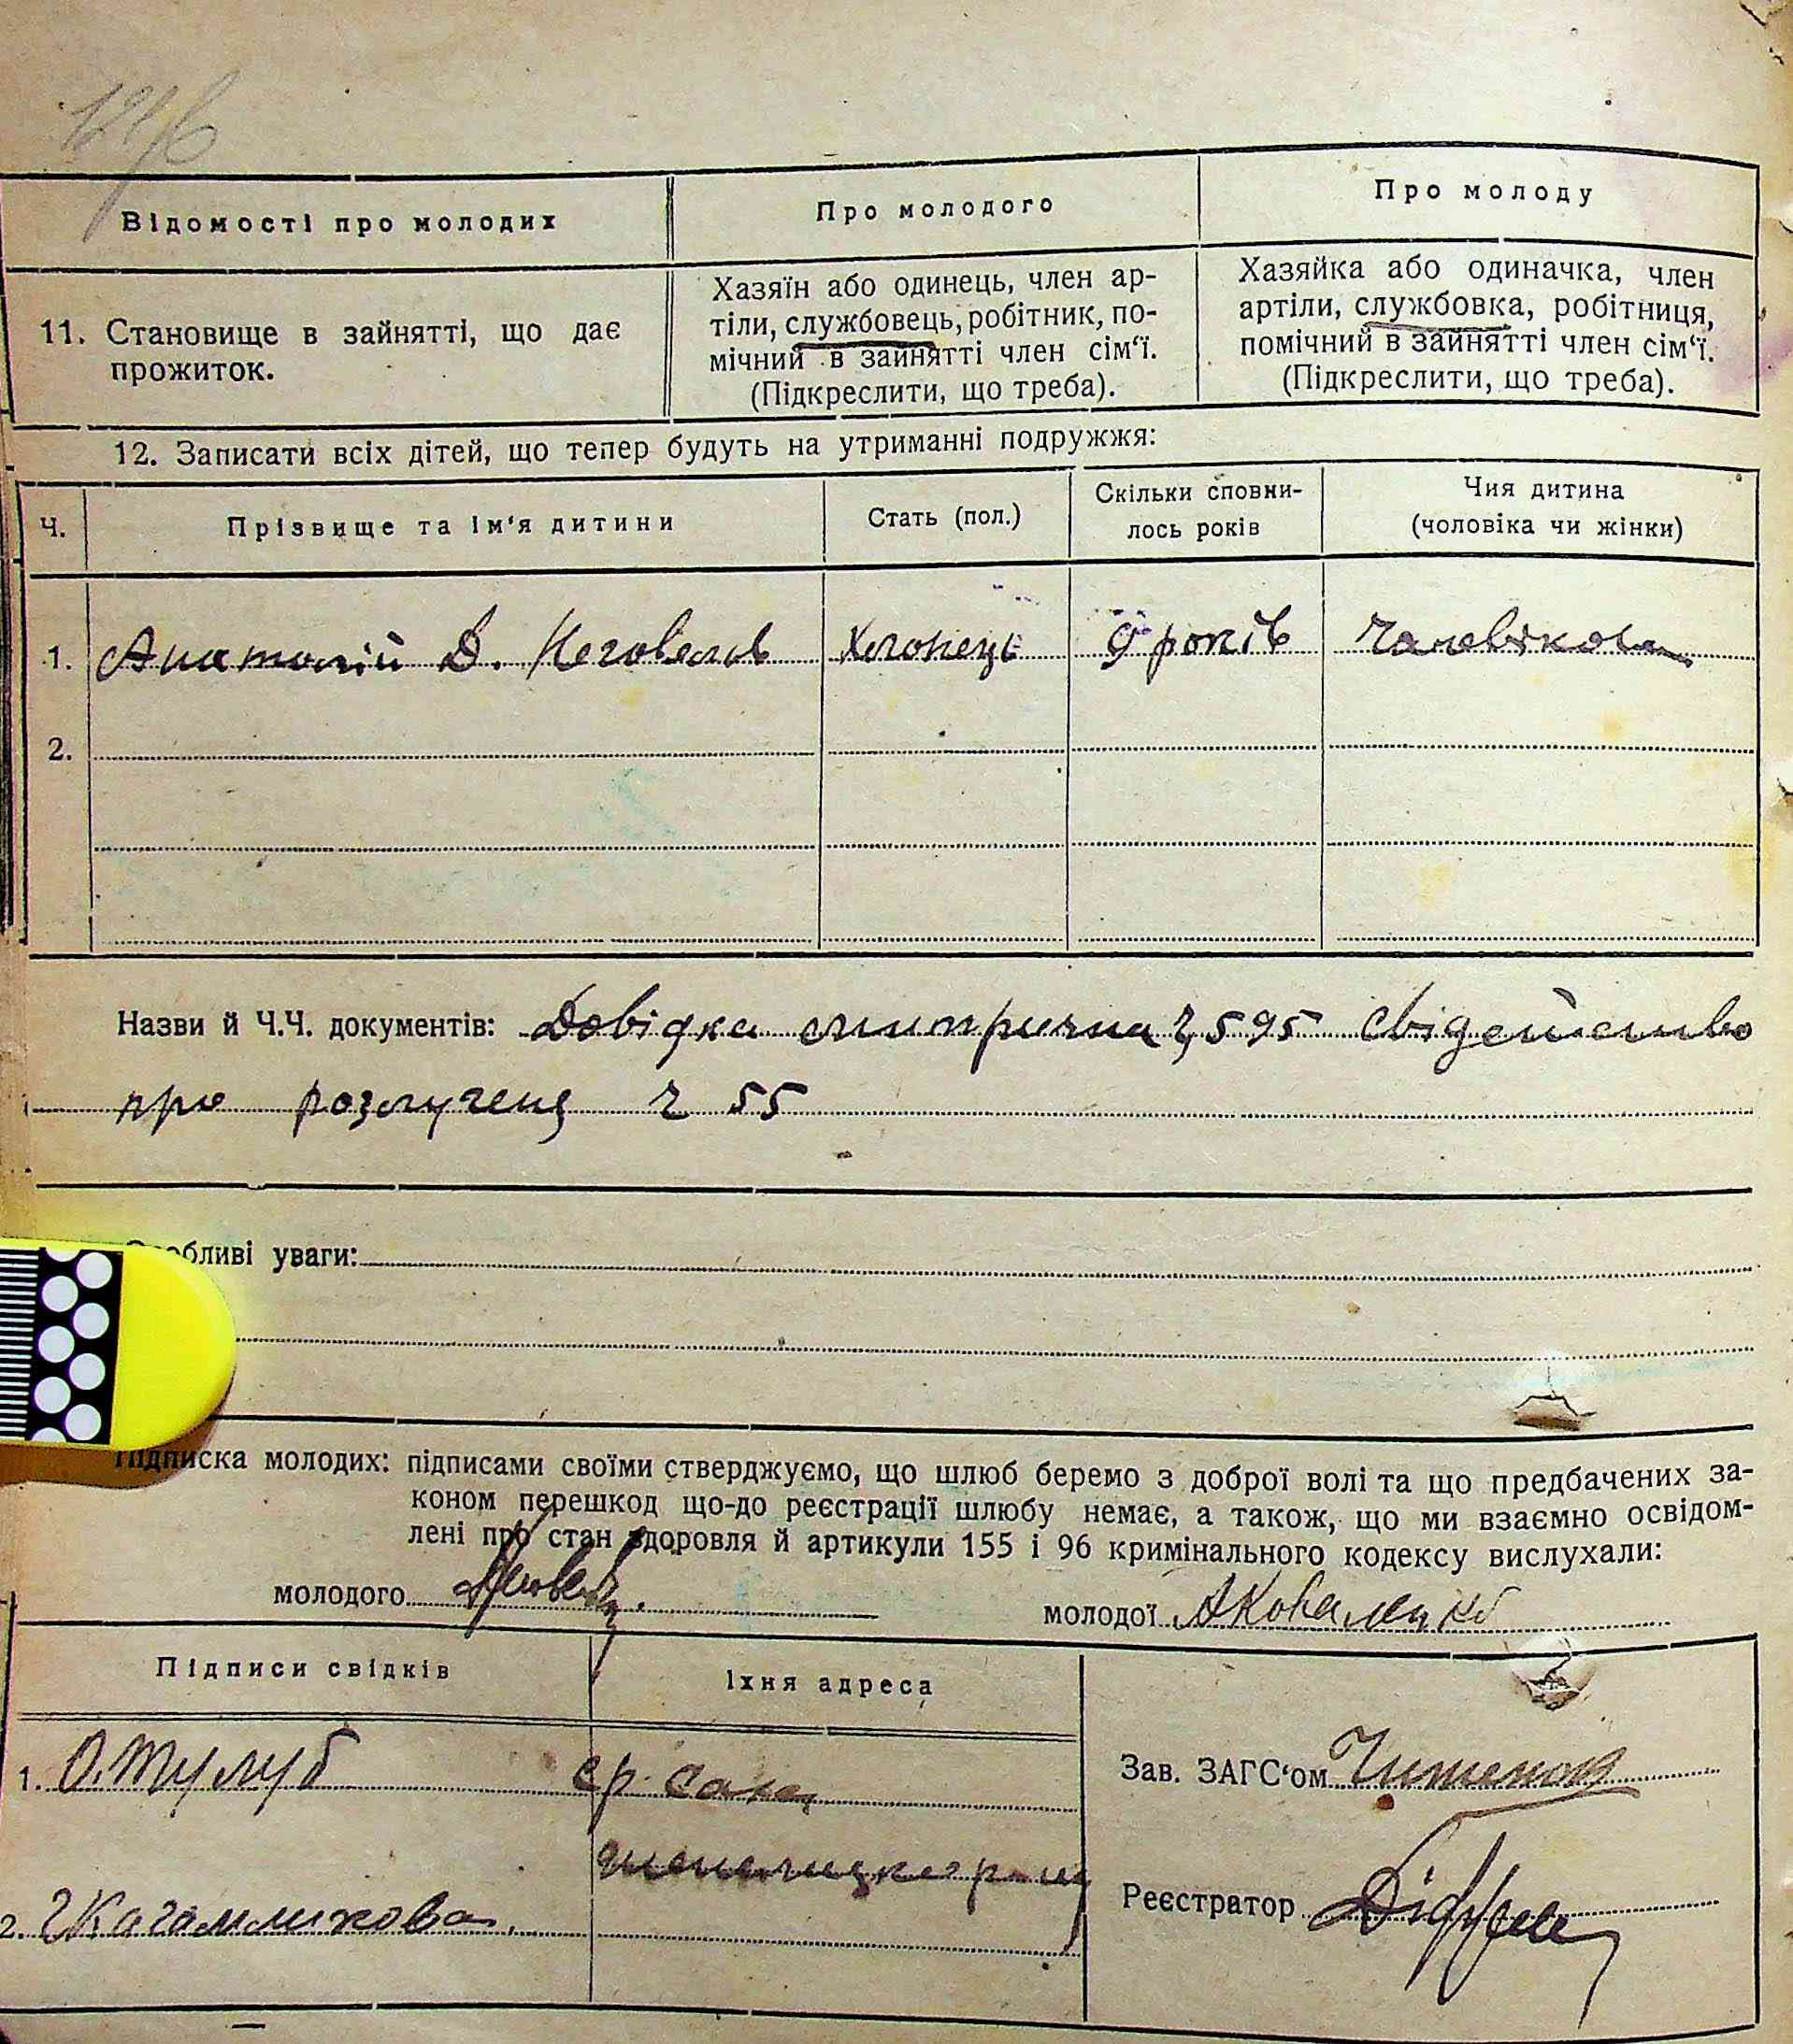 1246
Відомості про молодих
Про молодого
Про молоду
11. Становище в зайнятті, що дає
прожиток.
Хазяїн або одинець, член ар-
тіли, службовець, робітник, по-
мічний в зайнятті член сім‘ї.
(Підкреслити, що треба).
Хазяйка або одиначка, член
артіли, службовка, робітниця,
помічний в зайнятті член сім‘ї.
(Підкреслити, що треба).
12. Записати всіх дітей, що тепер будуть на утриманні подружжя:
Ч.
Прізвище та ім‘я дитини
Стать (пол.)
Скільки сповни-
лось років
Чия дитина
(чоловіка чи жінки)
1. Анатолій Д. Неговелов Хлопець 9 років Чаловікова
2.
Назви й Ч.Ч. документів: Довідка ч 595 свідетство
про розлученя ч 55
обливі уваги:
Підписка молодих: підписами своїми стверджуємо, що шлюб беремо з доброї волі та що предбачених за-
коном перешкод що-до реєстрації шлюбу немає, а також, що ми взаємно освідом-
лені про стан здоровля й артикули 155 і 96 кримінального кодексу вислухали:
молодого
молодої АКоваленко
Підписи свідків
Їхня адреса
1. О. Тулуб
2.
Зав. ЗАГС‘ом
Реєстратор